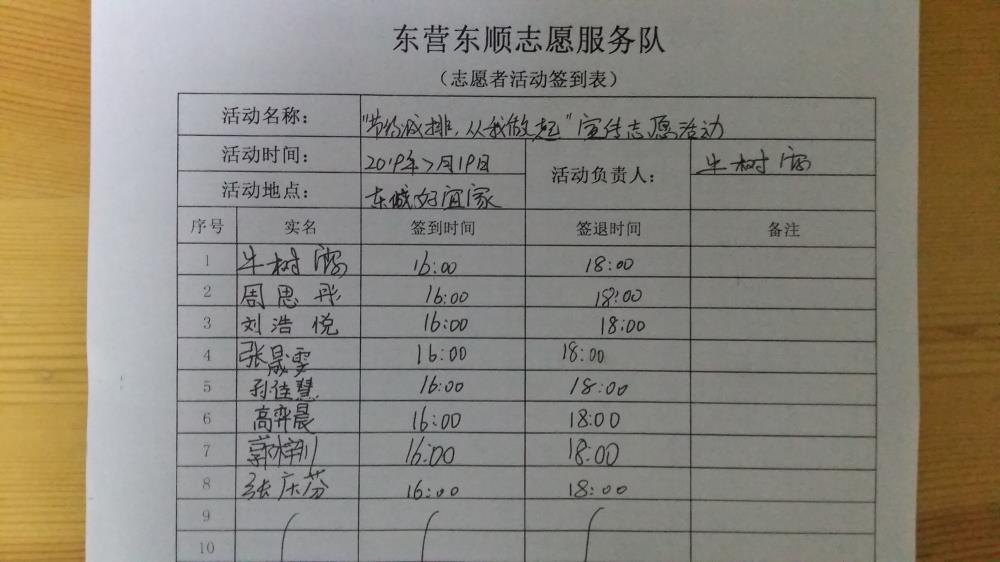 东营东顺志愿服务队
（志愿者活动签到表）
活动名称： "节约减排，从我做起"宣传志愿活动
活动时间： 2019年7月19日 活动负责人： 牛树
活动地点： 东城好宜家
序号 实名 签到时间 签退时间 备注
1 牛树 16:00 18:00
2 周思彤 16:00 18:00
3 刘浩悦 16:00 18:00
4 张晟雯 16:00 18:00
5 孙佳慧 16:00 18:00
6 高弈晨 16:00 18:00
7 郭梓川 16:00 18:00
8 张庆芬 16:00 18:00
9
10